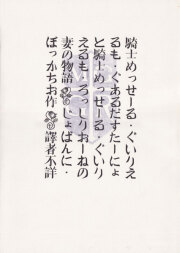 騎士めっせーる・ぐいりえ
るも・ぐあるだすたーにょ
と騎士めっせーる・ぐいり
えるも・ろっしりおーねの
妻の物語・じょばんに・
ぼっかちお作譯者不詳